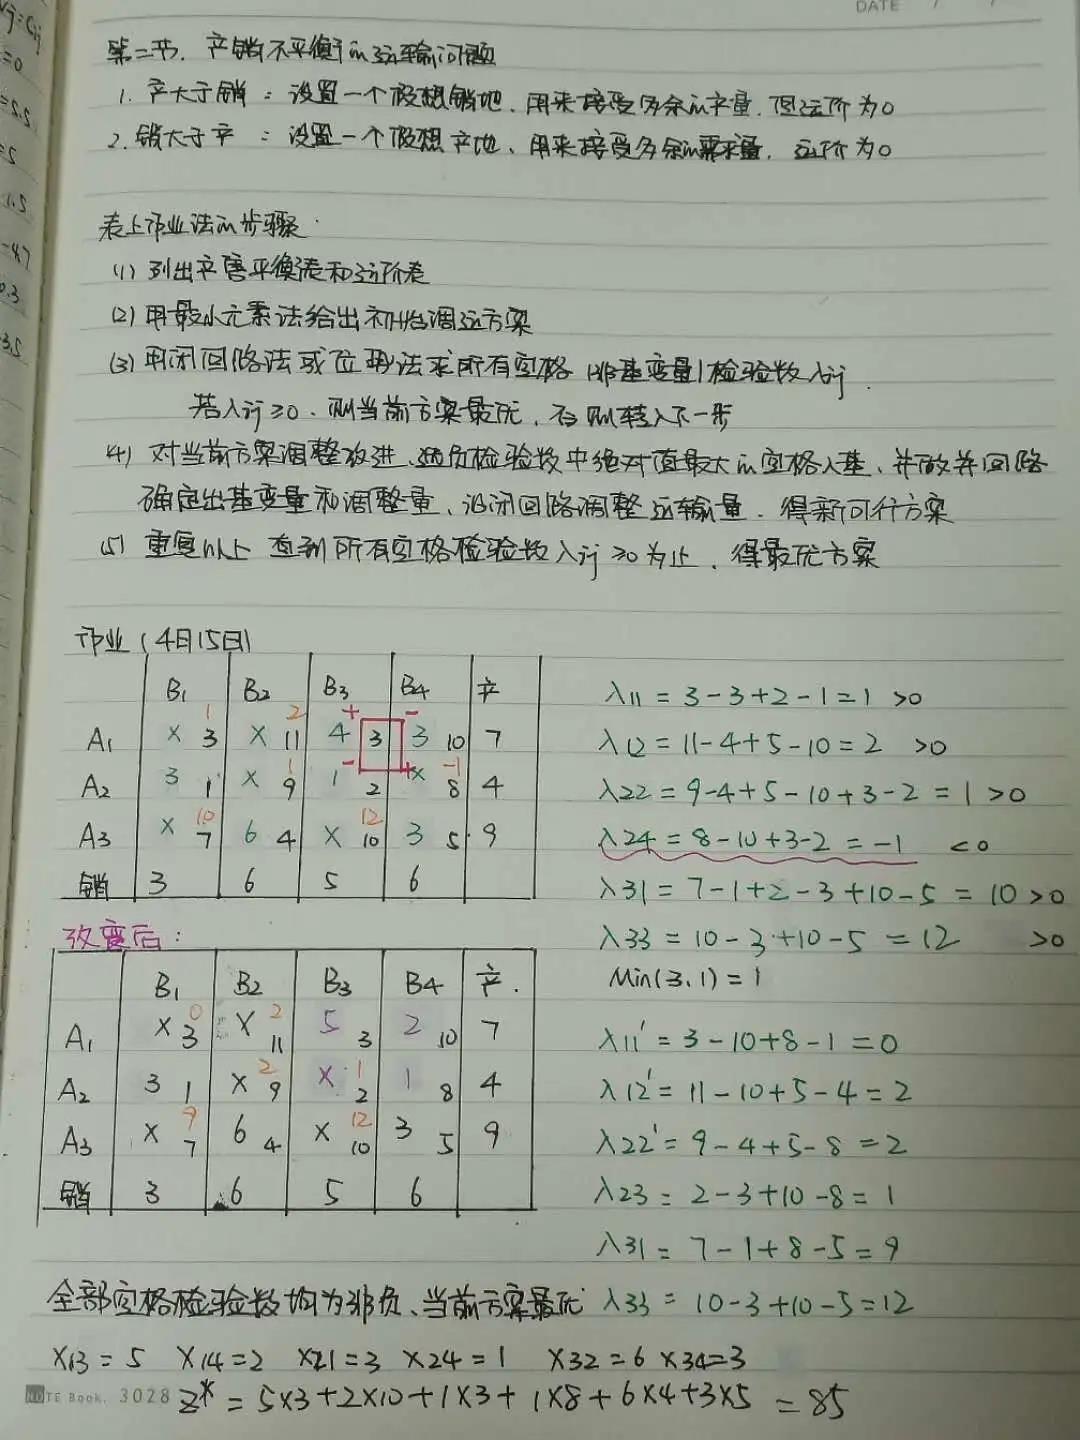 DATE
第二节. 产销不平衡的运输问题
1. 产大于销 : 设置一个假想销地. 用来接受多余的产量. 但运价为0
2. 销大于产 : 设置一个假想产地、用来接受多余的需求量. 运价为0
表上作业法的步骤.
(1) 列出产销平衡表和运价表
(2) 用最小元素法给出初始调运方案
(3) 用闭回路法或位势法求所有空格 (非基变量)检验数λij.
若λij≥0. 则当前方案最优. 否则转入下一步
(4) 对当前方案调整改进、选负检验数中绝对值最大的空格入基、并做并回路
确定出基变量和调整量、沿闭回路调整运输量. 得新可行方案
(5) 重复以上 直到所有空格检验数λij≥0为止. 得最优方案
作业(4月15日)
B1 B2 B3 B4 产
A1 × 3 1 × 11 2 4 3 + 3 10 - 7
A2 3 1 × 9 1 1 2 - × 8 -1 + 4
A3 × 7 10 6 4 × 10 12 3 5 9
销 3 6 5 6
λ11 = 3-3+2-1=1 >0
λ12 = 11-4+5-10=2 >0
λ22 = 9-4+5-10+3-2=1 >0
λ24 = 8-10+3-2 = -1 <0
λ31 = 7-1+2-3+10-5 = 10 >0
λ33 = 10-3+10-5 = 12 >0
Min(3.1) = 1
改变后:
B1 B2 B3 B4 产.
A1 × 3 0 × 11 2 5 3 2 10 7
A2 3 1 × 9 2 × 2 1 1 8 4
A3 × 7 9 6 4 × 10 12 3 5 9
销 3 6 5 6
λ11' = 3-10+8-1=0
λ12' = 11-10+5-4=2
λ22' = 9-4+5-8=2
λ23 = 2-3+10-8=1
λ31 = 7-1+8-5=9
λ33 = 10-3+10-5=12
全部空格检验数均为非负、当前方案最优
X13=5 X14=2 X21=3 X24=1 X32=6 X34=3
NOTE Book. 3028
Z* = 5×3+2×10+1×3+1×8+6×4+3×5 = 85